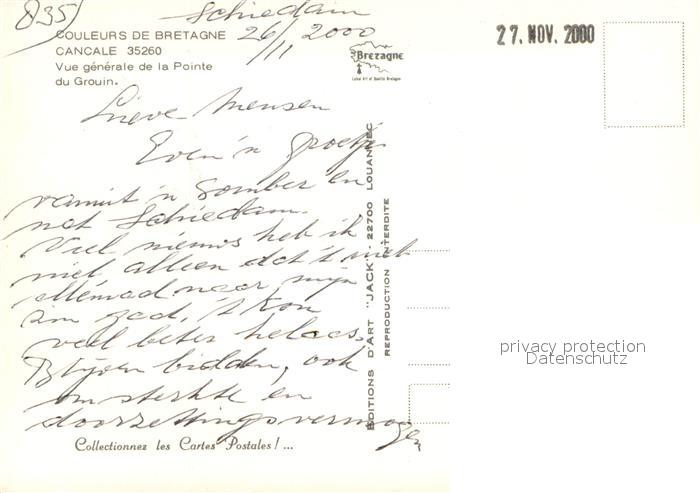 835
Schiedam
26/11 2000
COULEURS DE BRETAGNE
CANCALE 35260
Vue générale de la Pointe
du Grouin.
Bretagne
27. NOV. 2000
Lieve Mensen
Even 'n groetje
vanuit 'n somber en
nat Schiedam.
Veel nieuws heb ik
niet alleen dat 't niet
allemaal naar mijn
zin gaat, 't kon
veel beter helaas.
Blijven bidden, ook
om sterkte en
doorzettingsvermogen
EDITIONS D'ART "JACK" - 22700 LOUANNEC
REPRODUCTION INTERDITE
Collectionnez les Cartes Postales ! ...
privacy protection
Datenschutz